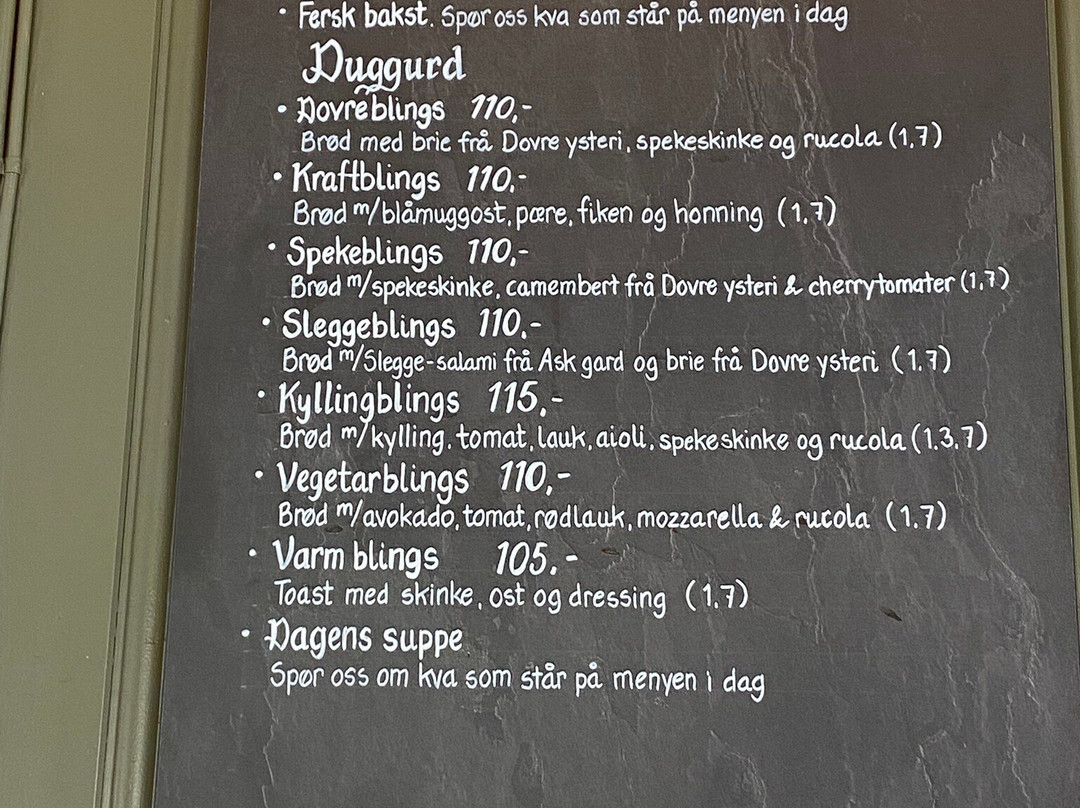 • Fersk bakst. Spør oss kva som står på menyen i dag
Duggurd
• Dovreblings 110,-
Brød med brie frå Dovre ysteri, spekeskinke og rucola (1,7)
• Kraftblings 110,-
Brød m/blåmuggost, pære, fiken og honning (1,7)
• Spekeblings 110,-
Brød m/spekeskinke, camembert frå Dovre ysteri & cherrytomater (1,7)
• Sleggeblings 110,-
Brød m/Slegge-salami frå Ask gard og brie frå Dovre ysteri (1.7)
• Kyllingblings 115,-
Brød m/kylling, tomat, lauk, aioli, spekeskinke og rucola (1.3.7)
• Vegetarblings 110,-
Brød m/avokado, tomat, rødlauk, mozzarella & rucola (1.7)
• Varm blings 105.-
Toast med skinke, ost og dressing (1,7)
• Dagens suppe
Spør oss om kva som står på menyen i dag